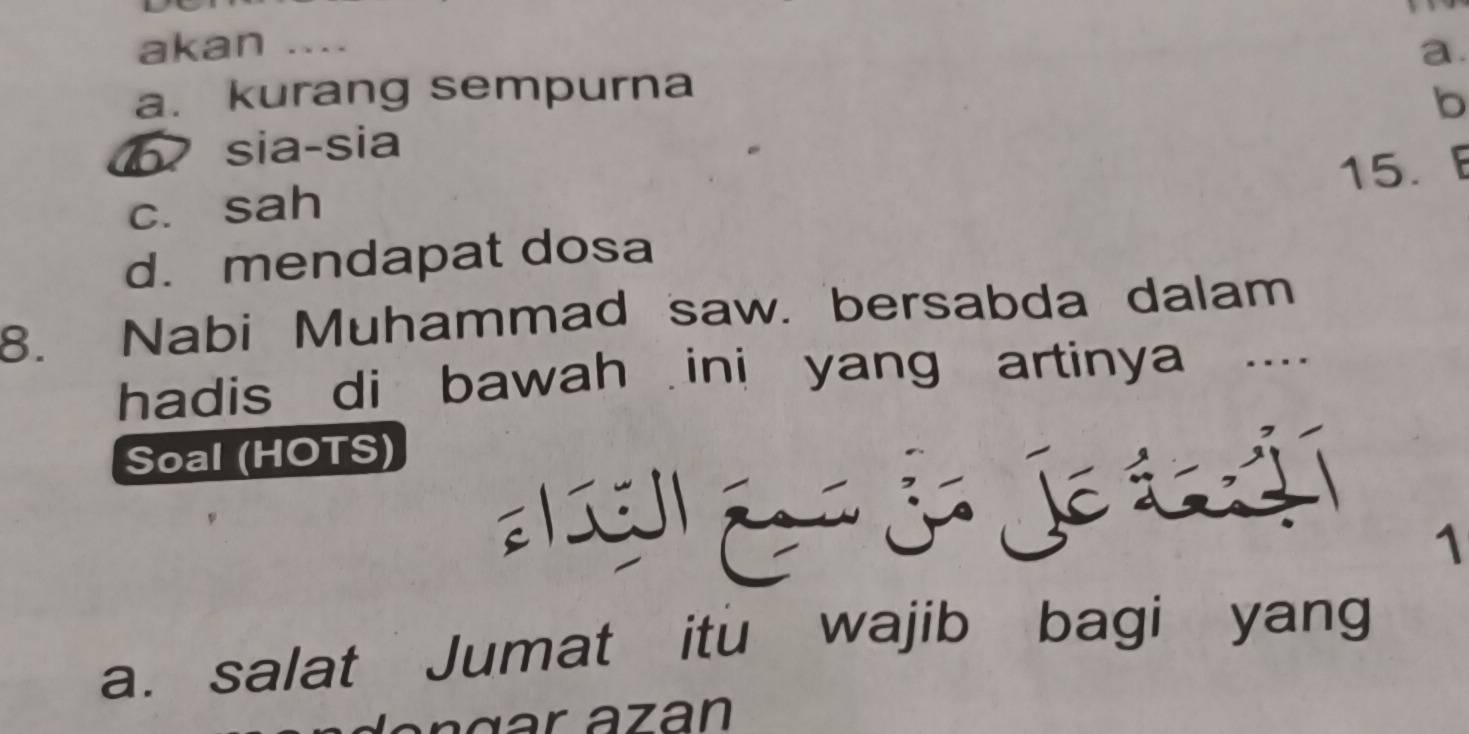 akan ....
a. kurang sempurna
b. sia-sia
c. sah
d. mendapat dosa
8. Nabi Muhammad saw. bersabda dalam
hadis di bawah ini yang artinya ....
Soal (HOTS)
اَلْجُمُعَةُ عَلَى مَنْ سَمِعَ النِّدَاءَ
a. salat Jumat itu wajib bagi yang
azan
a.
b
15.
1